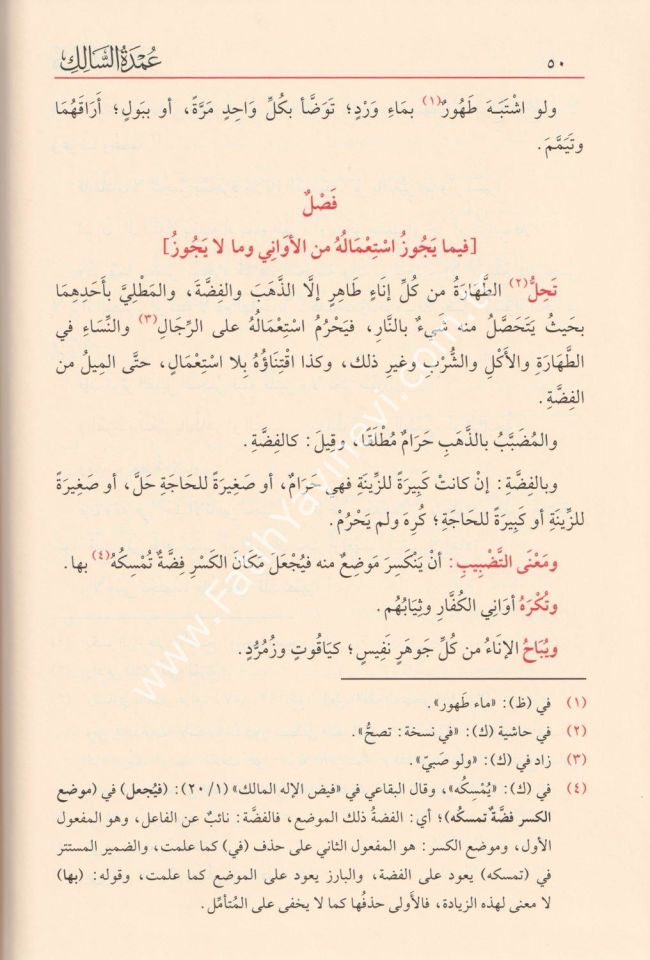 ٥٠ عُمْدَةُ السَّالِكِ
ولو اشْتَبَهَ طَهُورٌ(١) بمَاءِ وَرْدٍ؛ تَوَضَّأ بكُلِّ وَاحِدٍ مَرَّةً، أو ببَولٍ؛ أَرَاقَهُمَا
وتَيَمَّمَ.
فَصْلٌ
[فيما يَجُوزُ اسْتِعْمَالُهُ من الأوَاني وما لا يَجُوزُ]
تَحِلُّ(٢) الطَّهَارَةُ من كُلِّ إنَاءٍ طَاهِرٍ إلَّا الذَّهَبَ والفِضَّةَ، والمَطْلِيَّ بأَحَدِهِمَا
بحَيثُ يَتَحَصَّلُ منه شَيءٌ بالنَّارِ، فيَحْرُمُ اسْتِعْمَالُهُ على الرِّجَالِ(٣) والنِّسَاءِ في
الطَّهَارَةِ والأَكْلِ والشُّرْبِ وغيرِ ذلك، وكذا اقْتِنَاؤُهُ بِلا اسْتِعْمَالٍ، حتَّى المِيلُ من
الفِضَّةِ.
والمُضَبَّبُ بالذَّهَبِ حَرَامٌ مُطْلَقًا، وقِيلَ: كالفِضَّةِ.
وبالفِضَّةِ: إنْ كانتْ كَبِيرَةً للزِّينَةِ فهي حَرَامٌ، أو صَغِيرَةً للحَاجَةِ حَلَّ، أو صَغِيرَةً
للزِّينَةِ أو كَبِيرَةً للحَاجَةِ؛ كُرِهَ ولم يَحْرُمْ.
ومَعْنَى التَّضْبِيبِ: أنْ يَنْكَسِرَ مَوضِعٌ منه فيُجْعَلَ مَكَانَ الكَسْرِ فِضَّةٌ تُمْسِكُهُ(٤) بها.
وتُكْرَهُ أوَاني الكُفَّارِ وثِيَابُهُم.
ويُبَاحُ الإنَاءُ من كُلِّ جَوهَرٍ نَفِيسٍ؛ كيَاقُوتٍ وزُمُرُّدٍ.
(١) في (ظ): «ماء طَهور».
(٢) في حاشية (ك): «في نسخة: تصحُّ».
(٣) زاد في (ك): «ولو صَبِيّ».
(٤) في (ك): «يُمْسِكُه»، وقال البقاعي في «فيض الإله المالك» (٢٠/١): (فيُجعل) في (موضع
الكسر فضَّةٌ تمسكُه)؛ أي: الفضةُ ذلك الموضع، فالفضَّة: نائبٌ عن الفاعل، وهو المفعول
الأول، وموضع الكسر: هو المفعول الثاني على حذف (في) كما علمت، والضمير المستتر
في (تمسكه) يعود على الفضة، والبارز يعود على الموضع كما علمت، وقوله: (بها)
لا معنى لهذه الزيادة، فالأَولى حذفُها كما لا يخفى على المُتأمِّل.
www.FatihYayinevi.com.tr